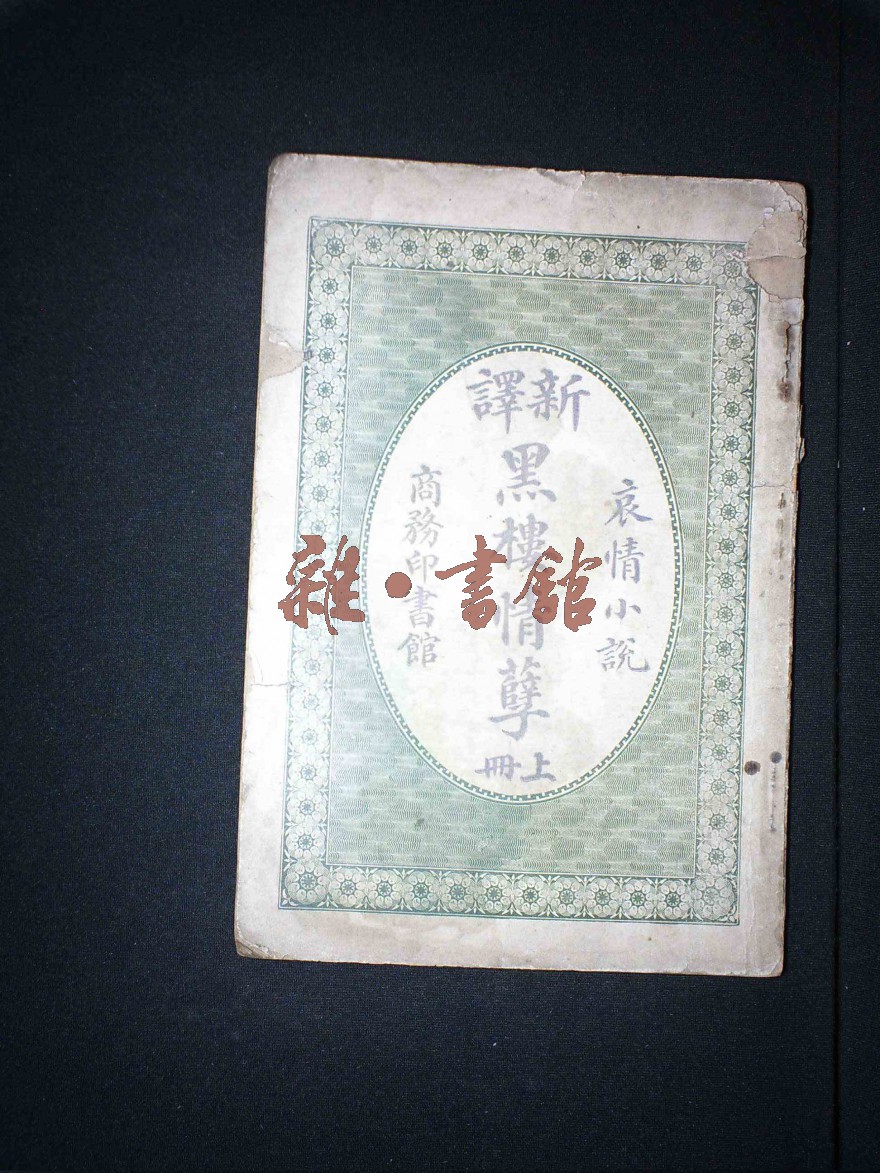 哀情小說
新譯
黑樓情孽
上冊
商務印書館
雜·書館